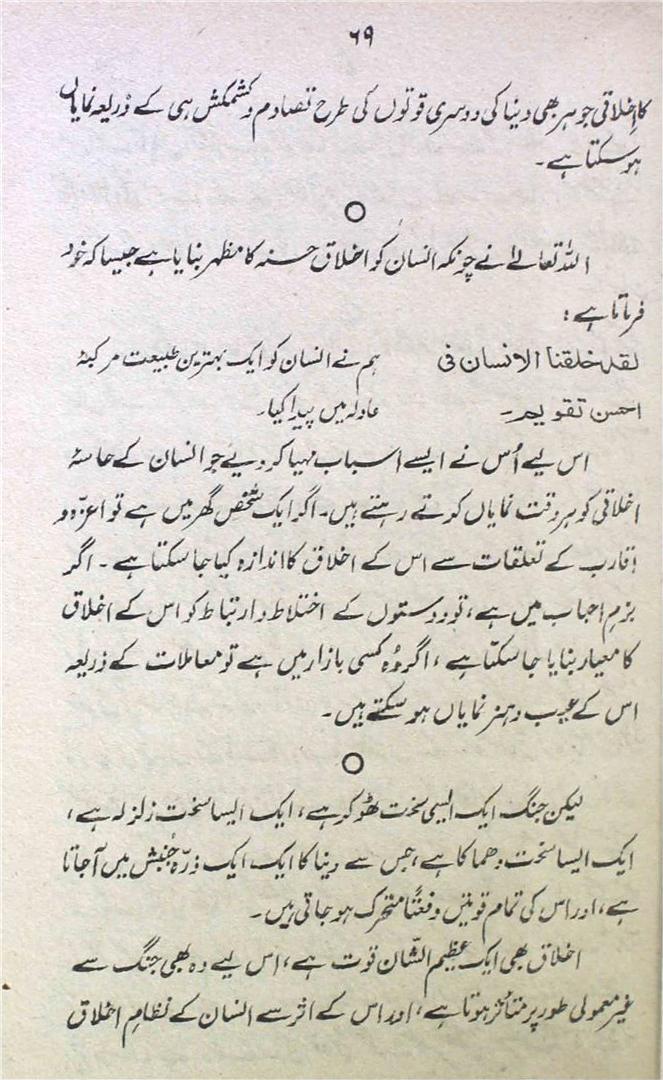 ۶۹
کا اخلاقی جوہر بھی دنیا کی دوسری قوتوں کی طرح تصادم و کشمکش ہی کے ذریعہ نمایاں
ہو سکتا ہے۔
اللہ تعالےٰ نے چونکہ انسان کو اخلاق حسنہ کا مظہر بنایا ہے جیسا کہ خود
فرماتا ہے :
لقد خلقنا الانسان فی ہم نے انسان کو ایک بہترین طبیعت مرکبۂ
احسن تقویم۔ عادلہ میں پیدا کیا۔
اس لیے اُس نے ایسے اسباب مہیا کر دیئے جو انسان کے حاسۂ
اخلاقی کو ہر وقت نمایاں کرتے رہتے ہیں۔ اگر ایک شخص گھر میں ہے تو اعزّہ و
اقارب کے تعلقات سے اس کے اخلاق کا اندازہ کیا جا سکتا ہے۔ اگر
بزمِ احباب میں ہے، تو دوستوں کے اختلاط و ارتباط کو اس کے اخلاق
کا معیار بنایا جا سکتا ہے ، اگر وُہ کسی بازار میں ہے تو معاملات کے ذریعہ
اس کے عیوب و ہنر نمایاں ہو سکتے ہیں۔
لیکن جنگ ایک ایسی سخت ٹھوکر ہے، ایک ایسا سخت زلزلہ ہے،
ایک ایسا سخت دھماکا ہے ،جس سے دنیا کا ایک ایک ذرّہ جُنبش میں آجاتا
ہے، اور اس کی تمام قوتیں دفعتًا متحرک ہو جاتی ہیں۔
اخلاق بھی ایک عظیم الشّان قوت ہے، اس لیے وہ بھی جنگ سے
غیر معمولی طور پر متاثر ہوتا ہے، اور اس کے اثر سے انسان کے نظامِ اخلاق